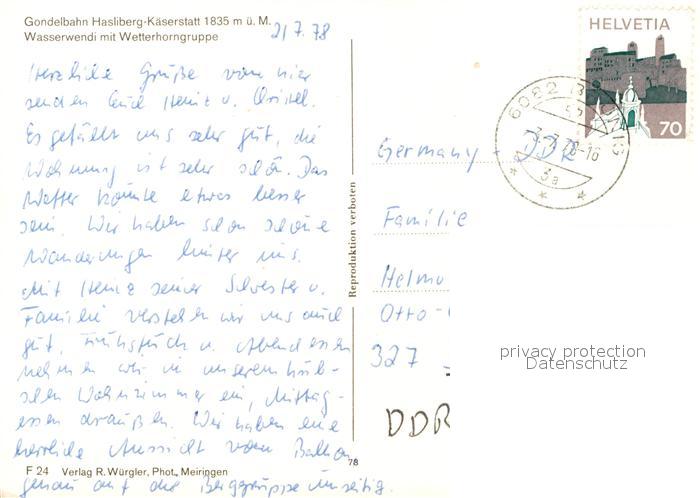 Gondelbahn Hasliberg-Käserstatt 1835 m ü. M.
Wasserwendi mit Wetterhorngruppe
2/7.78
Herzliche Grüße von hier
senden Euch Heinz u. Christel.
Es gefällt uns sehr gut, die
Wohnung ist sehr schön. Das
Wetter könnte etwas besser
sein. Wir haben schon schöne
Wanderungen hinter uns.
Mit Heinz seiner Schwester u.
Familie verstehen wir uns auch
gut, Frühstück u. Abendessen
nehmen wir in unserem hüb-
schen Wohnzimmer ein, Mittag-
essen draußen. Wir haben eine
herrliche Aussicht vom Balkon
genau auf die Berggruppe umseitig.
F 24 Verlag R. Würgler, Phot., Meiringen
78
Reproduktion verboten
HELVETIA
70
6082
3a
Germany - DDR
Familie
Helmu
Otto-
327
DDR
privacy protection
Datenschutz